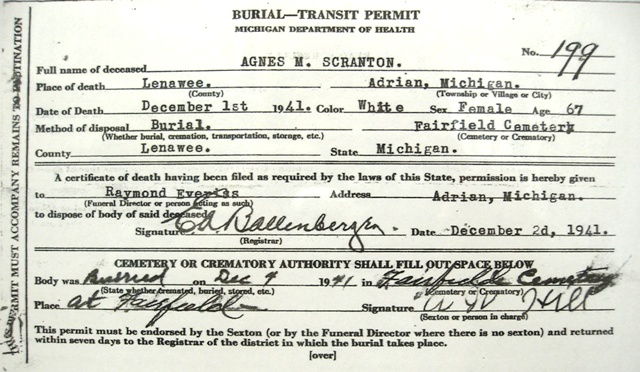 BURIAL—TRANSIT PERMIT
MICHIGAN DEPARTMENT OF HEALTH
No. 199
Full name of deceased AGNES M. SCRANTON.
Place of death Lenawee. Adrian, Michigan.
(County) (Township or Village or City)
Date of Death December 1st 1941. Color White Sex Female Age 67
Method of disposal Burial. Fairfield Cemetery
(Whether burial, cremation, transportation, storage, etc.) (Cemetery or Crematory)
County Lenawee. State Michigan.
A certificate of death having been filed as required by the laws of this State, permission is hereby given
to Raymond Address Adrian, Michigan.
(Funeral Director or person acting as such)
to dispose of body of said deceased
Signature Ed Ballenberger. Date December 2d, 1941.
(Registrar)
CEMETERY OR CREMATORY AUTHORITY SHALL FILL OUT SPACE BELOW
Body was Burried on Dec 4 1941 in Fairfield Cemetery
(State whether cremated, buried, stored, etc.) (Cemetery or Crematory)
Place at Fairfield Signature Hill
(Sexton or person in charge)
This permit must be endorsed by the Sexton (or by the Funeral Director where there is no sexton) and returned
within seven days to the Registrar of the district in which the burial takes place.
[over]
PERMIT MUST ACCOMPANY REMAINS TO DESTINATION